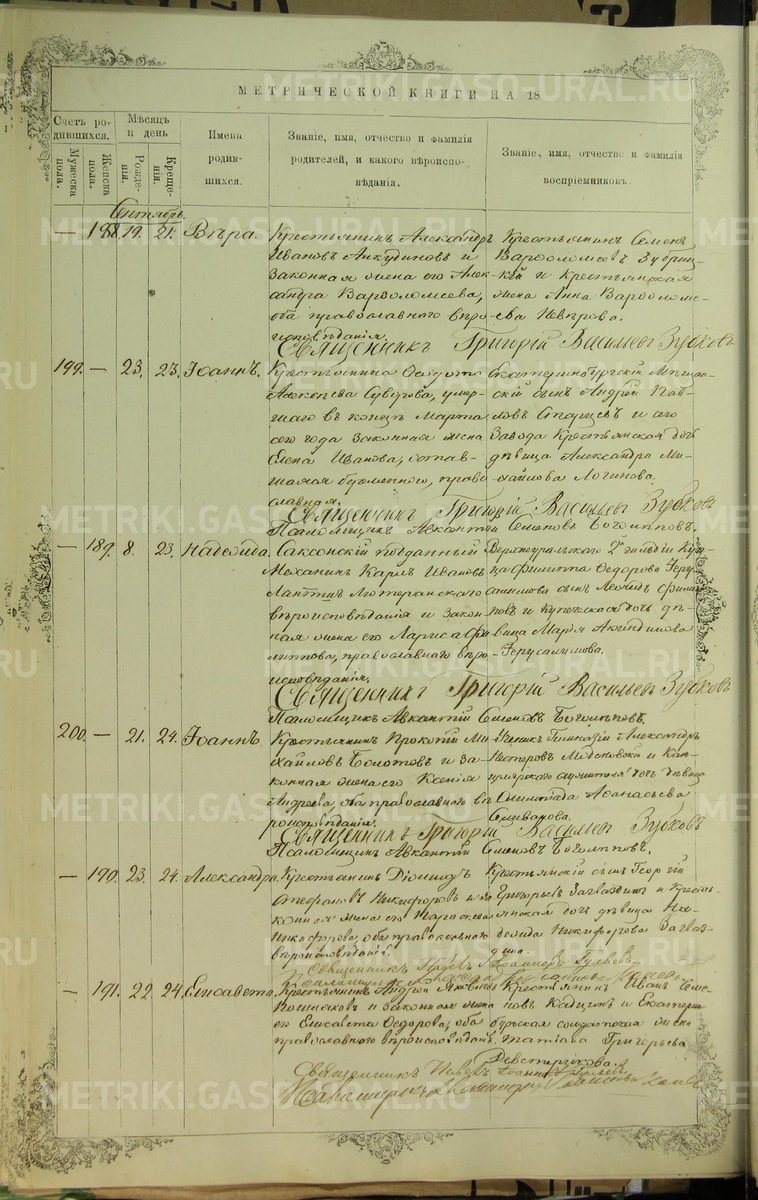 МЕТРИЧЕСКОЙ КНИГИ НА 18
Счетъ родившихся.
Мужеска пола.
Женска пола.
Мѣсяцъ и день
Рожденія.
Крещенія.
Имена родившихся.
Званіе, имя, отчество и фамилія родителей, и какого вѣроисповѣданія.
Званіе, имя, отчество и фамилія воспріемниковъ.
Сентябрь
— 188. 19. 21. Вѣра.
Крестьянинъ Александръ
Ивановъ Анкудиновъ и
законная жена его Алек-
сандра Варѳоломеева,
оба православнаго вѣро-
исповѣданія.
Крестьянинъ Семенъ
Варѳоломеевъ
и крестьянская
жена Анна Варѳоломе-
ева
Священникъ Григорій Васильевъ Зубковъ
199. — 23. 23. Іоаннъ.
Крестьянина Ѳедота
Алексѣева умер-
шаго въ концѣ Марта
сего года законная жена
Елена Иванова, остав-
шаяся беременной, право-
славная.
Екатеринбургскій мѣщан-
скій сынъ Андрей Пав-
ловъ Старцевъ и его
завода крестьянская дочь
дѣвица Александра Ми-
хайлова Логинова.
Священникъ Григорій Васильевъ Зубковъ
Псаломщикъ Авкентій Семеновъ Боголѣповъ.
— 189. 8. 23. Надежда.
Саксонскій подданный
Механикъ Карлъ Ивановъ
Лютеранскаго
вѣроисповѣданія и закон-
ная жена его Лариса Фи-
липпова, православнаго вѣро-
исповѣданія.
Верхнеуральскаго 2й гильдіи куп-
ца Филиппа Ѳедорова Іеру-
салимова сынъ Леонидъ Филип-
повъ и купеческая дочь дѣ-
вица Марія Акиндинова
Іерусалимова.
Священникъ Григорій Васильевъ Зубковъ
Псаломщикъ Авкентій Семеновъ Боголѣповъ.
200. — 21. 24. Іоаннъ.
Крестьянинъ Прокопій Ми-
хайловъ Болотовъ и за-
конная жена его Ксенія
Андреева, оба православнаго вѣ-
роисповѣданія.
Ученикъ Гимназіи Александръ
Несторовъ и Кан-
целярскаго служителя дочь дѣвица
Олимпіада Аѳанасьева
Селиванова.
Священникъ Григорій Васильевъ Зубковъ
Псаломщикъ Авкентій Семеновъ Боголѣповъ.
— 190. 23. 24. Александра.
Крестьянинъ Діомидъ
Стефановъ Никифоровъ и за-
конная жена его Параскева
Никифорова, оба православнаго
вѣроисповѣданія.
Крестьянскій сынъ Георгій
Григорьевъ Загвоздинъ и кресть-
янская дочь дѣвица На-
дежда Никифорова Загвоз-
дина.
Священникъ Павелъ Іоанновъ
— 191. 22. 24. Елисавета.
Крестьянинъ Андрей Яковлевъ
и законная жена
его Елисавета Ѳедорова, оба
православнаго вѣроисповѣданія.
Крестьянинъ Иванъ Семе-
новъ Кадцинъ и Екатерин-
бургская солдатская жена
Татіана Григорьева
Священникъ Павелъ Іоанновъ
METRIKI.GASO-URAL.RU